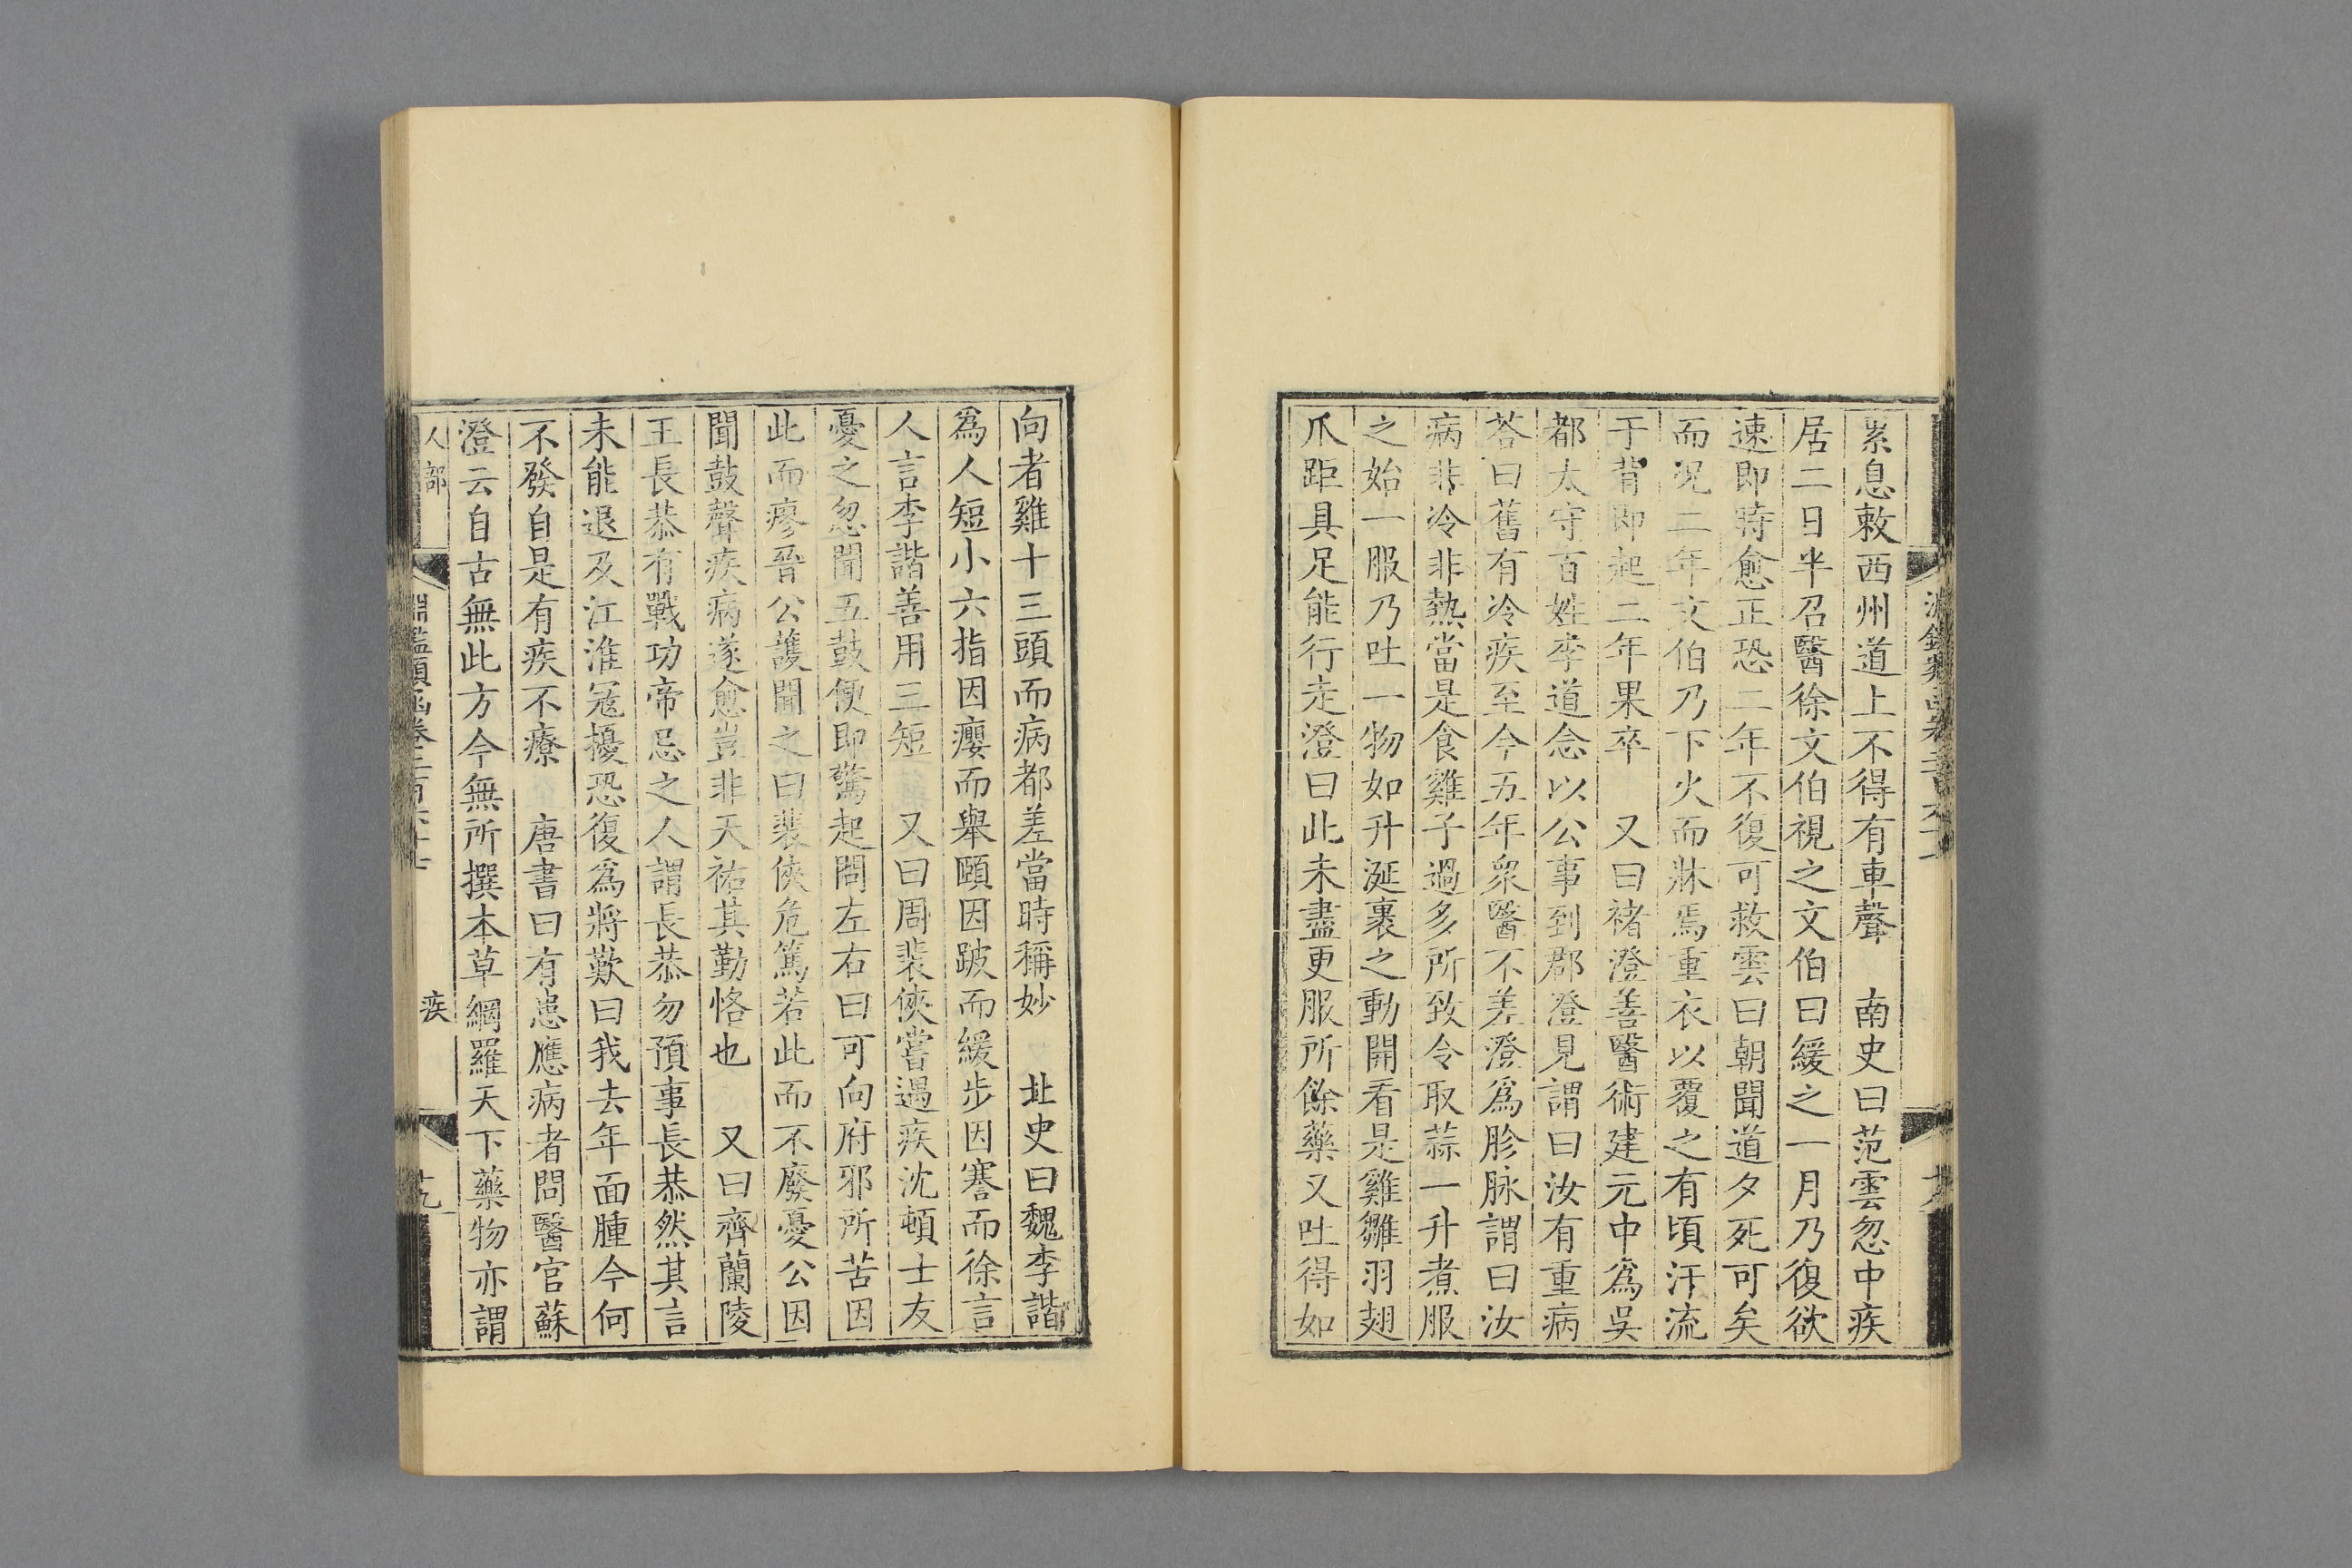 累息敕西州道上不得有車聲　南史曰范雲忽中疾
居二日半召醫徐文伯視之文伯曰緩之一月乃復欲
速即時愈正恐二年不復可救雲曰朝聞道夕死可矣
而況二年文伯乃下火而牀焉重衣以覆之有頃汗流
于背即起二年果卒　又曰褚澄善醫術建元中爲吳
都太守百姓李道念以公事到郡澄見謂曰汝有重病
荅曰舊有冷疾至今五年衆醫不差澄爲胗脉謂曰汝
病非冷非熱當是食雞子過多所致令取蒜一升煮服
之始一服乃吐一物如升涎裹之動開看是雞雛羽翅
爪距具足能行走澄曰此未盡更服所餘藥又吐得如
向者雞十三頭而病都差當時稱妙　北史曰魏李諧
爲人短小六指因癭而舉頤因跛而緩步因謇而徐言
人言李諧善用三短　又曰周裴俠嘗遇疾沈頓士友
憂之忽聞五鼓便即驚起問左右曰可向府邪所苦因
此而瘳晉公護聞之曰裴俠危篤若此而不廢憂公因
聞鼓聲疾病遂愈豈非天祐其勤恪也　又曰齊蘭陵
王長恭有戰功帝忌之人謂長恭勿預事長恭然其言
未能退及江淮寇擾恐復爲將歎曰我去年面腫今何
不發自是有疾不療　唐書曰有患應病者問醫官蘇
澄云自古無此方今無所撰本草網羅天下藥物亦謂
人部
淵鑑類函卷二百六十七
疾
十九